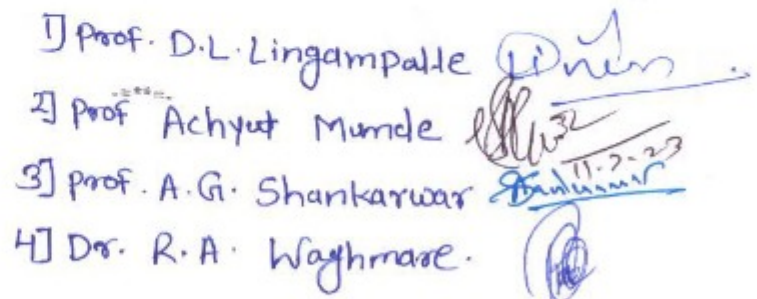 1] Prof. D.L. Lingampalle
2] Prof Achyut Munde
11-7-23
3] Prof. A.G. Shankarwar
4] Dr. R.A. Waghmare.